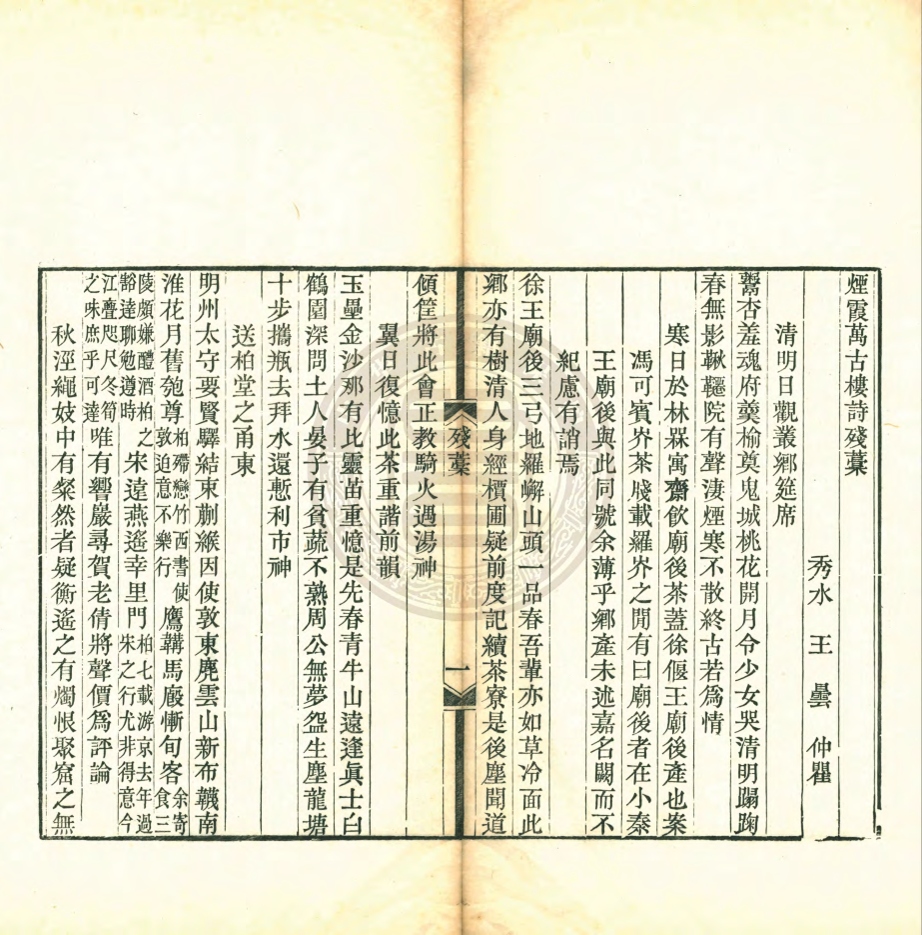 煙霞萬古樓詩殘藁
秀水 王曇 仲瞿
清明日觀叢鄉筵席
鬻杏羞魂府羹榆奠鬼城桃花開月令少女哭清明蹋踘
春無影鞦韆院有聲淒煙寒不散終古若爲情
寒日於林槑寓齋飲廟後茶蓋徐偃王廟後產也案
馮可賓岕茶牋載羅岕之閒有曰廟後者在小秦
王廟後與此同號余薄乎鄉產未述嘉名闕而不
紀慮有誚焉
徐王廟後三弓地羅嶰山頭一品春吾輩亦如草冷面此
鄉亦有樹清人身經檟圃疑前度記續茶寮是後塵聞道
傾筐將此會正教騎火過湯神
翼日復憶此茶重諧前韻
玉壘金沙那有此靈苗重憶是先春青牛山遠逢眞士白
鶴園深問土人晏子有貧蔬不熟周公無夢盌生塵龍塘
十步攜瓶去拜水還慙利市神
送柏堂之甬東
明州太守要賢驛結束蒯緱因使敦東麂雲山新布韈南
淮花月舊匏尊柏殢戀竹西書使敦迫意不樂行鷹韝馬廄慚旬客余寄食三
陵頗嫌醴酒柏之豁達聊勉遵時宋遠燕遙幸里門柏七載游京去年過宋之行尤非得意今
江亹咫尺冬筍之味庶乎可達唯有響巖尋賀老倩將聲價爲評論
秋涇繩妓中有粲然者疑衡遙之有燭恨聚窟之無
殘藁
一